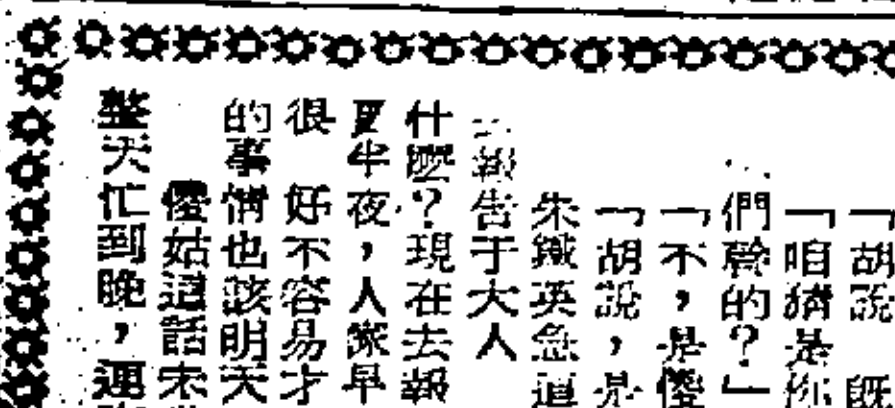 「胡說 既
「咱猜是你
們幹的?」
「不,是傻
「胡說,是
朱鐵英急道
報告于大人
什麼?現在去報
更半夜,人家早
很 好不容易才
的事情也該明天
傻姑這話未
整天忙到晚,運